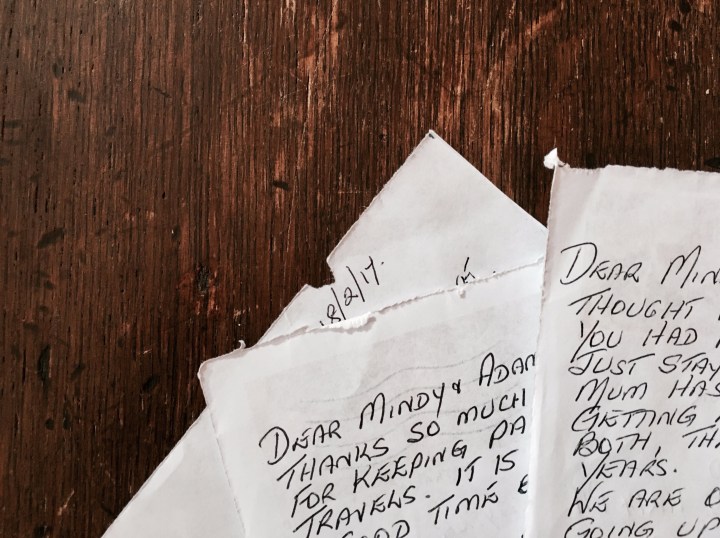 8/2/17.
DEAR MINDY & ADAM
THANKS SO MUCH
FOR KEEPING
TRAVELS. IT IS
TIME
DEAR
THOUGHT
YOU HAD
JUST
MUM HAS
GETTING
BOTH,
YEARS.
WE ARE
GOING UP